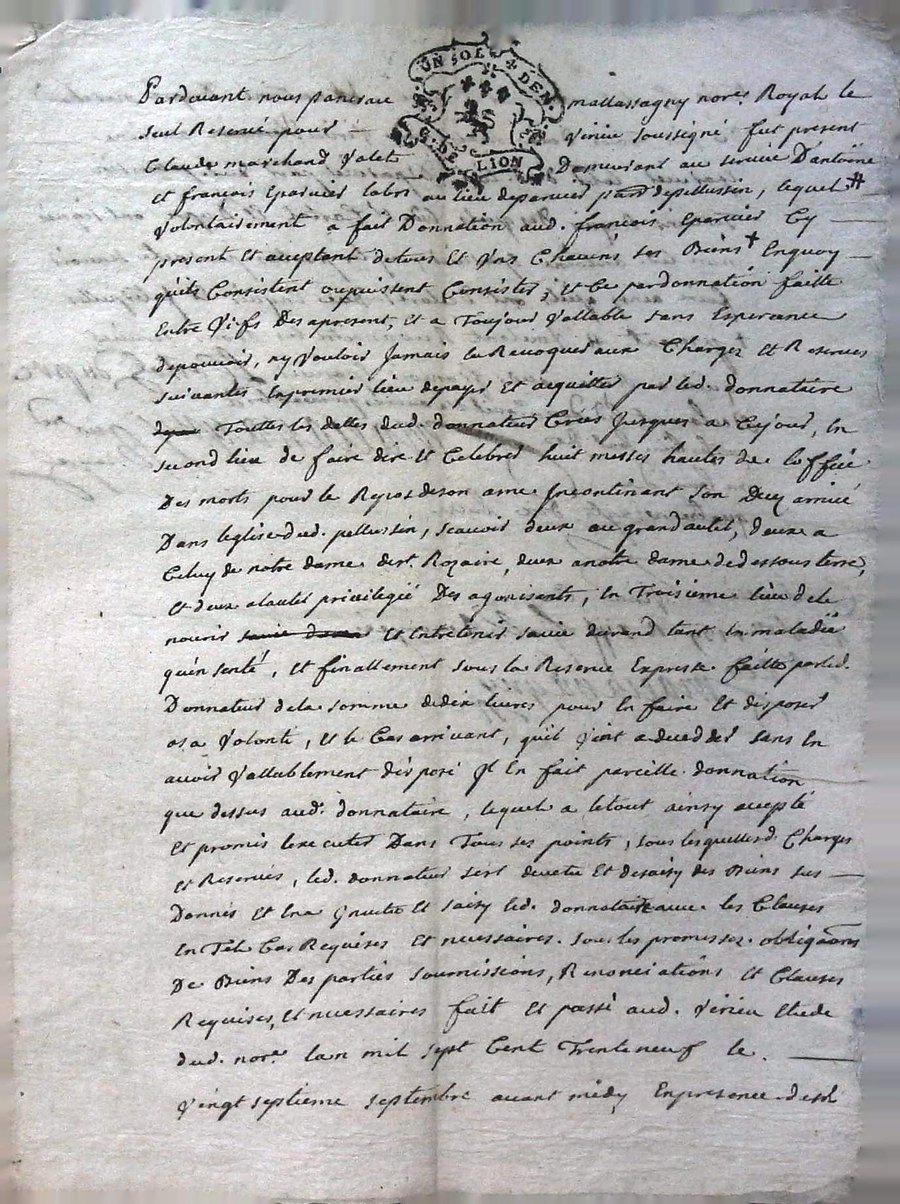 UN SOL & DEN.
G. DE LION
Pardevant nous pancrace mallassagny nore. Royal le
seul Reservé pour — Virieu soussigné fut present
Claude marchand Valet Demeurant au service D'antoine
et françois Eparvier labrs au lieu deparvier parr depellussin, lequel #
Volontairement a fait Donnation aud. francois Eparvier Cy —
present Et aceptant detous Et Vns Chacuns ses Biens + Enquoy —
quils Consistent ou puissent Consister, et Ce par donnation faitte
Entre Vifs Des apresent, et a Toujour Vallable sans Esperance
depouvoir, ny Vouloir Jamais la Revoquer aux Charges Et Reserves
suivantes Enpremier lieu depayer Et acquitter par led. donnataire
Touttes les dettes dud. donnateur Crées Jusques a Cejour, En
second lieu de faire dire Et Celebrer huit messes hautes de loffice
Des morts pour le Repos deson ame Incontinant son Decez arrivé
Dans leglise dud. pellussin, scavoir deux au grand autel, deux a
Celuy de notre dame du st. Rozaire, deux a notre dame de dessous terre,
et deux alautel privilegié Des agonisants, En Troisieme lieu de le
nourir Et Entretenir sa vie durand tant En maladie
quén senté, Et finallement sous la Reserve Expresse faitte parled.
Donnateur dela somme dedix livres pour En faire Et disposer
asa Volonté, Et le Cas arrivant, quil Vint a deceder sans En
avoir Vallablement disposé Il En fait pareille donnation
que dessus aud. donnataire, lequel a letout ainsy accepté
Et promis lexecuter Dans Tous ses points, sous lesquelles d. Charges
et Reserves, led. donnateur sest devetu Et desaisy des Biens sus —
Donnés Et En a jnvetu Et saisy led. donnataire avec les Clauses
En Tel Cas Requises et necessaires. sous les promesses. obliga͠ons
De Biens Des parties soumissions, Renonciations et Clauses
Requises, Et necessaires fait Et passé aud. Virieu Etude
dud. nore. lan mil sept Cent Trente neuf le. —
Vingt septieme septembre avant midy Enpresence de sr